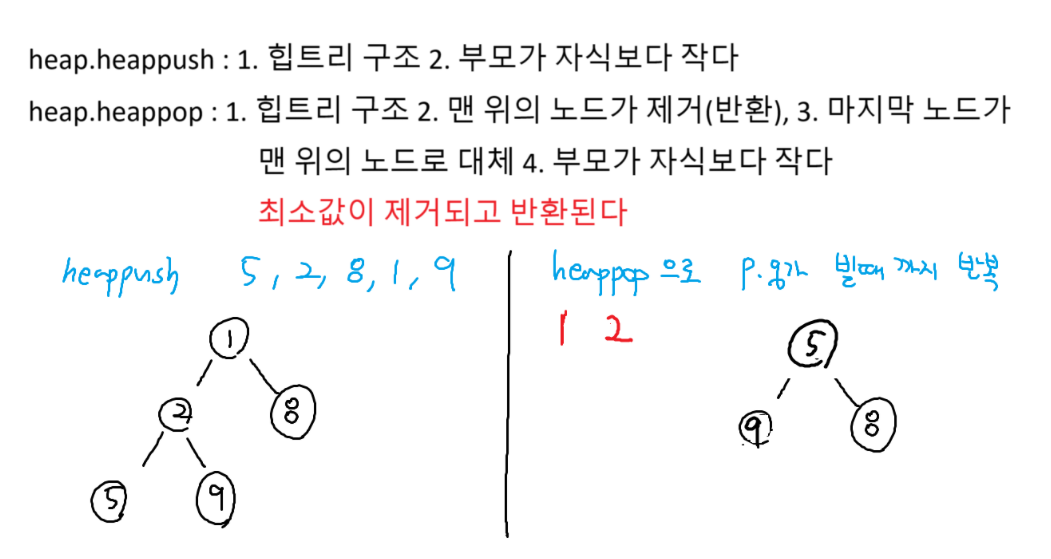 heap.heappush : 1. 힙트리 구조 2. 부모가 자식보다 작다
heap.heappop : 1. 힙트리 구조 2. 맨 위의 노드가 제거(반환), 3. 마지막 노드가
맨 위의 노드로 대체 4. 부모가 자식보다 작다
최소값이 제거되고 반환된다
heappush 5, 2, 8, 1, 9
1
2 8
5 9
heappop 으로 p.q가 빌때 까지 반복
1 2
5
9 8